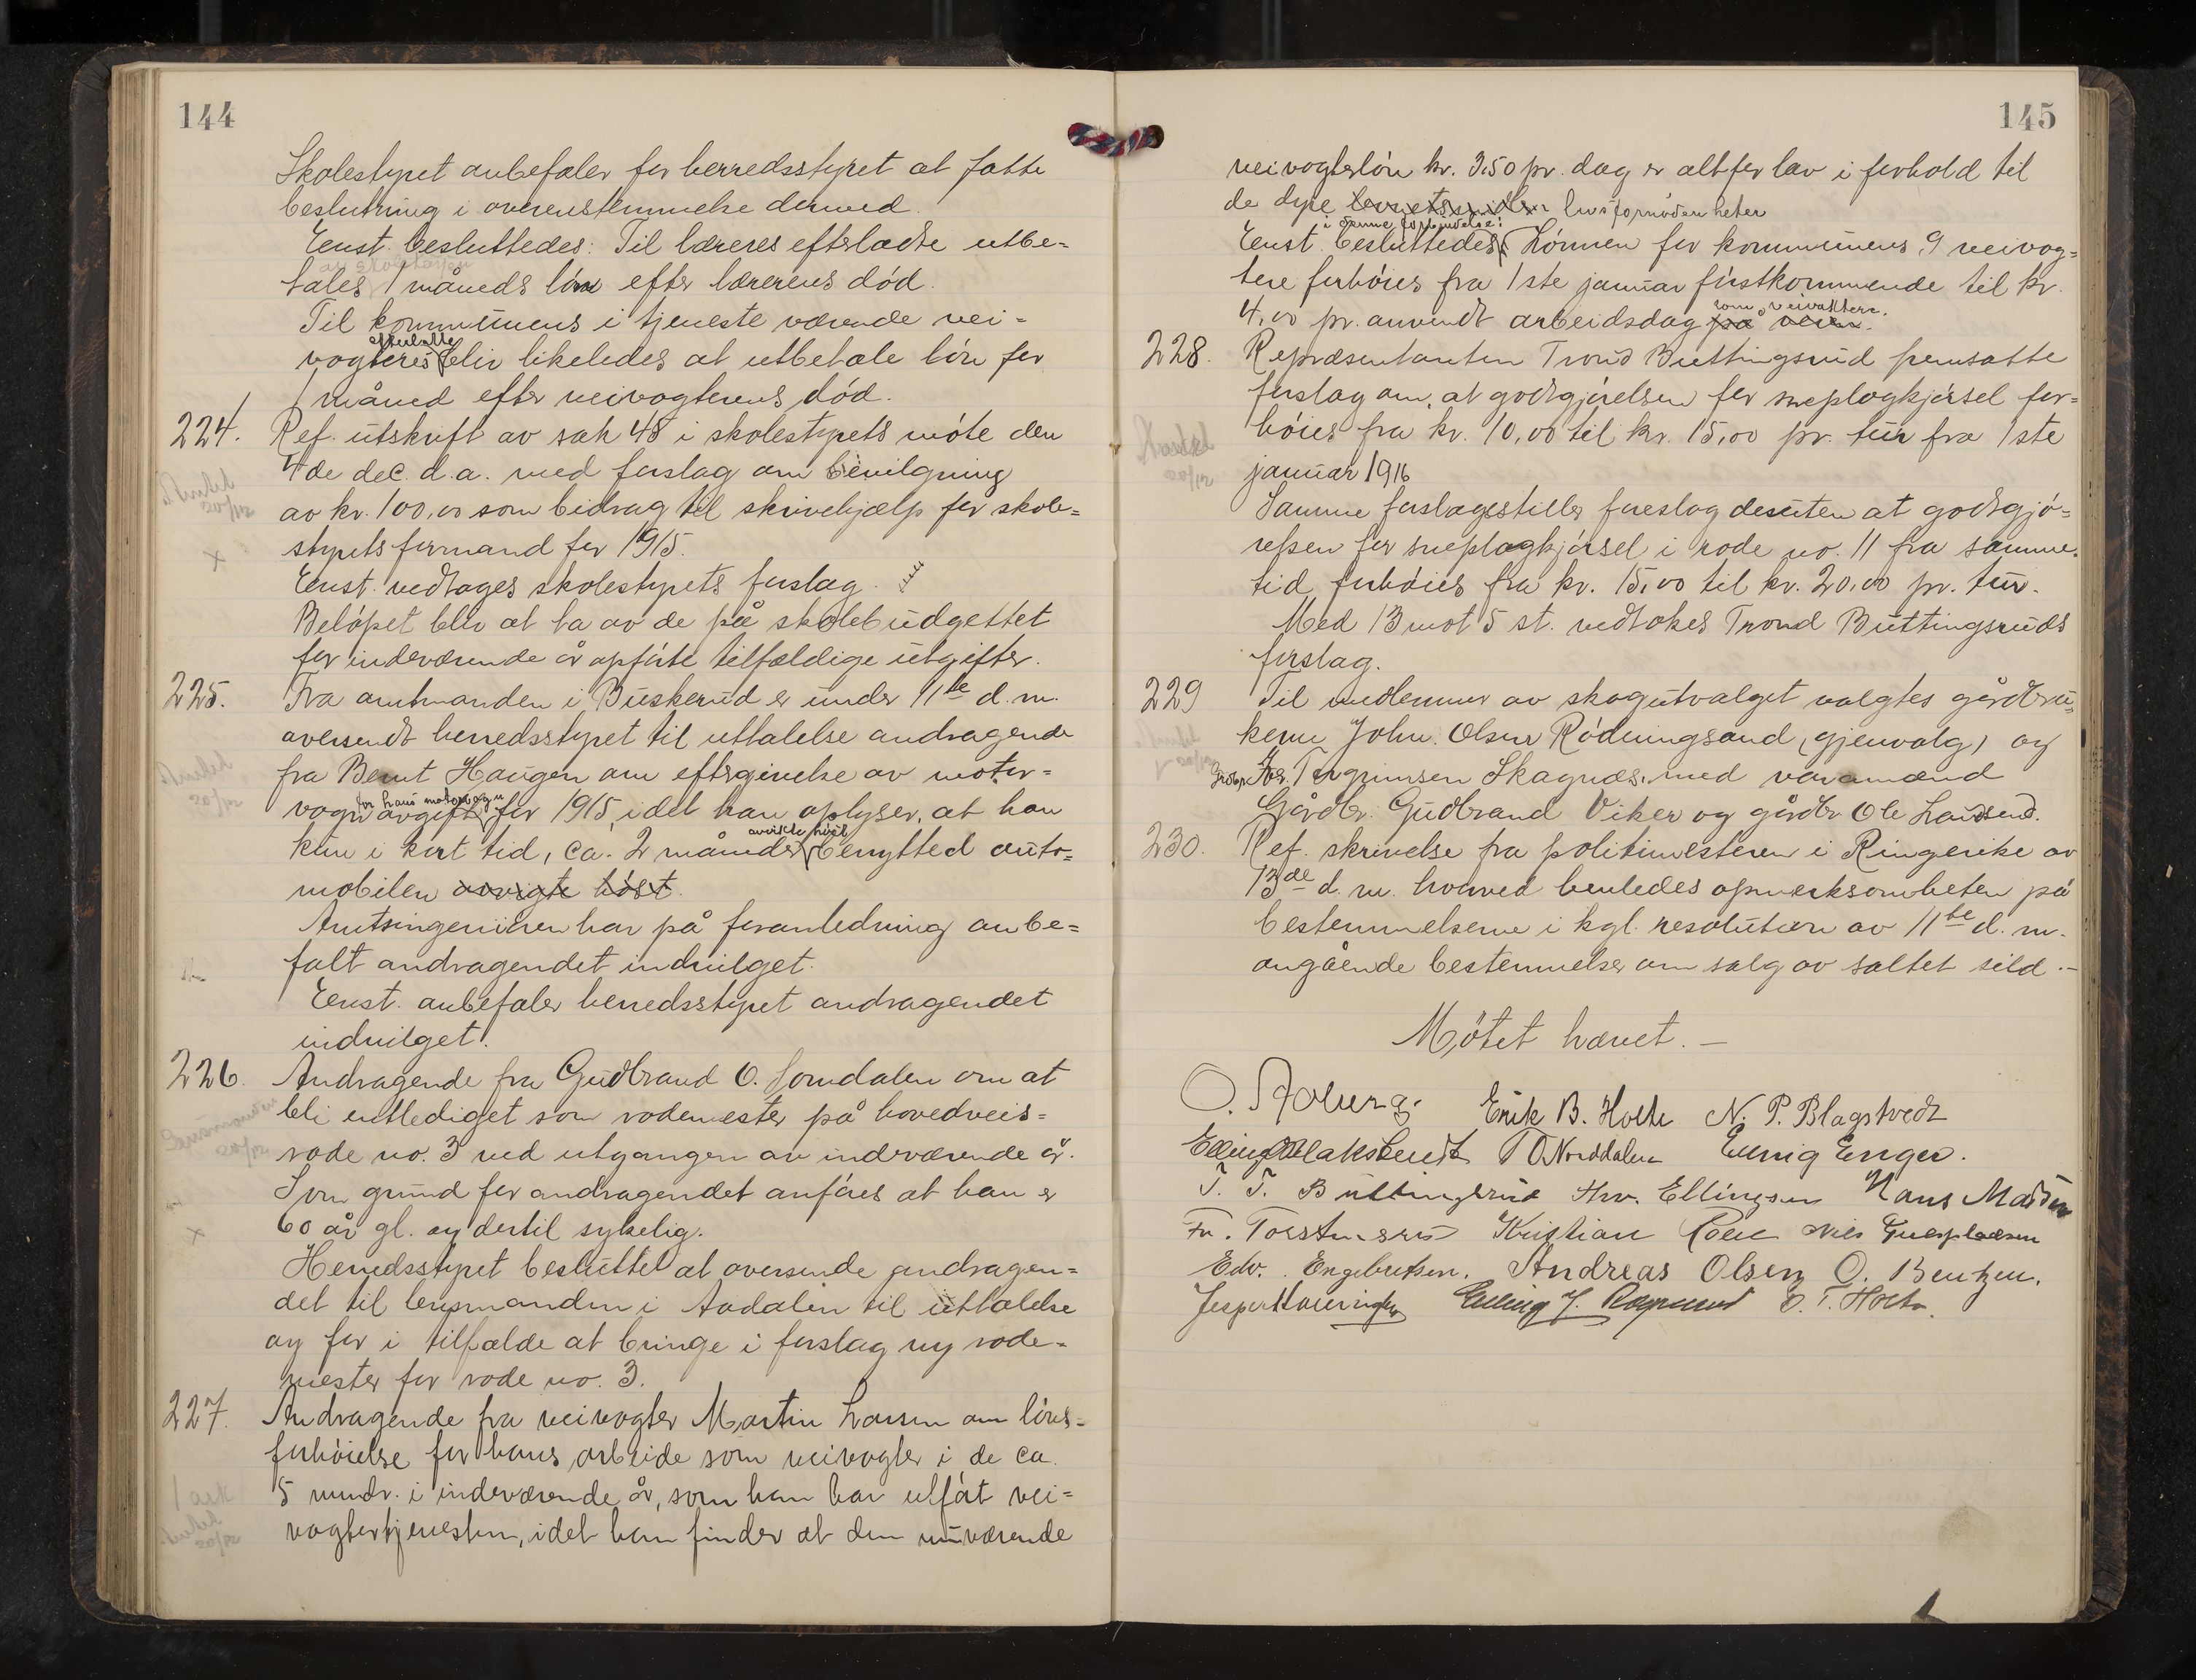 144
Skolestyret anbefaler for herredsstyret at fatte
beslutning i overenstemmelse dermed.
Enst. besluttedes: Til læreres efterladte utbe=
av skolekassen
tales 1 måneds løn efter lærerens død.
Til kommunens i tjeneste værende vei=
efterlatte
vogteres bliv likeledes at utbetale løn for
1 måned efter veivogterens død.
224. Ref. utskrift av sak 48 i skolestyrets møte den
4de dec. d.a. med forslag om bevilgning
av kr. 100,00 som bidrag til skrivehjælp for skole=
styrets formand for 1915.
Enst. vedtages skolestyrets forslag.
Beløpet bliv at ta av de på skolebudgettet
for indeværende år opførte tilfældige utgifter.
225. Fra amtmanden i Buskerud er under 11te d.m.
oversendt herredsstyret til uttalelse andragende
fra Bernt Haugen om eftergivelse av motor=
for hans motorvogn
vogn avgift for 1915, idet han oplyser, at han
avvikte høst
kun i kort tid, ca. 2 måneder benytted auto=
mobilen avvigte høst.
Amtsingeniøren har på foranledning anbe=
falt andragendet indvilget.
Enst. anbefaler herredsstyret andragendet
indvilget.
226. Andragende fra Gudbrand O. Somdalen om at
bli entlediget som rodemester på hovedveis=
rode no. 3 ved utgangen av indeværende år.
Som grund for andragendet anføres at han er
60 år gl. og dertil sykelig.
Herredsstyret besluttet at oversende andragen=
det til lensmanden i Aadalen til uttalelse
og for i tilfælde at bringe i forslag ny rode=
mester for rode no. 3.
227. Andragende fra veivogter Martin Larsen om løns=
forhøielse for hans arbeide som veivogter i de ca.
5 mndr. i indeværende år, som han har utført vei=
vogtertjenesten, idet han finder at den nuværende
145
veivogterløn kr. 3,50 pr. dag er altfor lav i forhold til
de dyre levnetsmidler livsfornødenheter
i denne forbindelse:
Enst. besluttedes Lønnen for kommunens 9 veivog=
tere forhøies fra 1ste januar førstkommende til kr.
som veivoktere.
4,00 pr. anvendt arbeidsdag på veien.
228. Repræsentanten Trond Buttingsrud fremsatte
forslag om, at godtgjørelsen for sneplogkjørsel for=
høies fra kr. 10,00 til kr. 15,00 pr. tur fra 1ste
januar 1916
Samme forslagsstiller foreslog desuten at godtgjø=
relsen for sneplogkjørsel i rode no. 11 fra samme
tid forhøies fra kr. 15,00 til kr. 20,00 pr. tur.
Med 13 mot 5 st. vedtokes Trond Buttingsruds
forslag.
229 Til medlemmer av skogutvalget valgtes gårdbru=
kerne John Olsen Rødningsand (gjenvalg) og
Gårdbr. Torgrimsen Skagnæs. med varamænd
Gårdbr. Gudbrand Viker og gårdbr. Ole Landsend.
230. Ref. skrivelse fra politimesteren i Ringerike av
13de d. m. hvorved henledes opmerksomheten på
bestemmelserne i kgl. resolution av 11te d. m.
angående bestemmelser om salg av saltet sild. –
Møtet hævet. –
Erik B. Holte N. P. Blagstvedt
T O Norddalen Elling Enger.
T. T. Buttingsrud Hrv. Ellingsen Hans Madsen
Fr. Torstensen Kristian Roen Nils
Edv. Engebretsen. Andreas Olsen O. Bentzen.
Elling J. E. T. Holte.